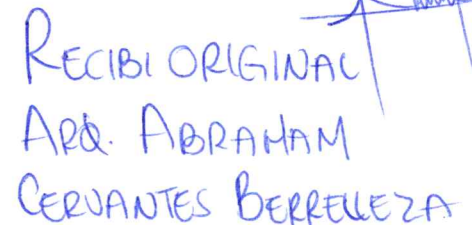 RECIBI ORIGINAL
ARQ. ABRAHAM
CERVANTES BERRELLEZA